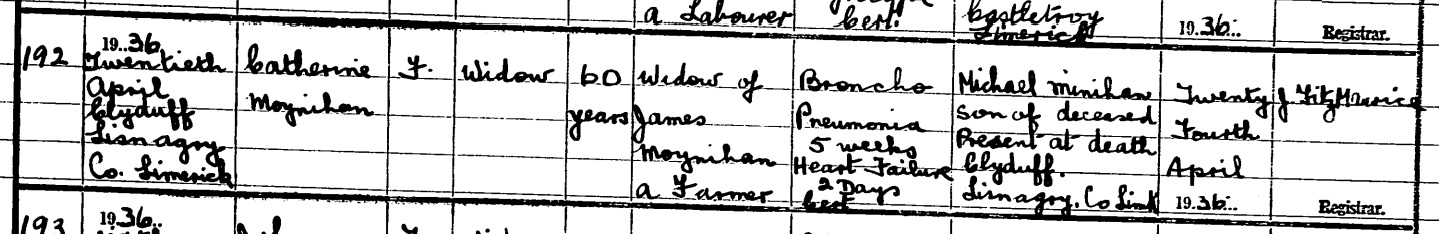 a Labourer
Cert.
Castletroy
Limerick
19.36.
Registrar.
192
19..36.
Twentieth
April
Clyduff
Lisnagry
Co. Limerick
Catherine
Moynihan
F.
Widow
60
years
Widow of
James
Moynihan
a Farmer
Broncho
Pneumonia
5 weeks
Heart Failure
2 Days
Cert
Michael Minihan
son of deceased
Present at death
Clyduff.
Lisnagry. Co Limk
Twenty
Fourth
April
19.36.
J. FitzMaurice
Registrar.
193
19.36..